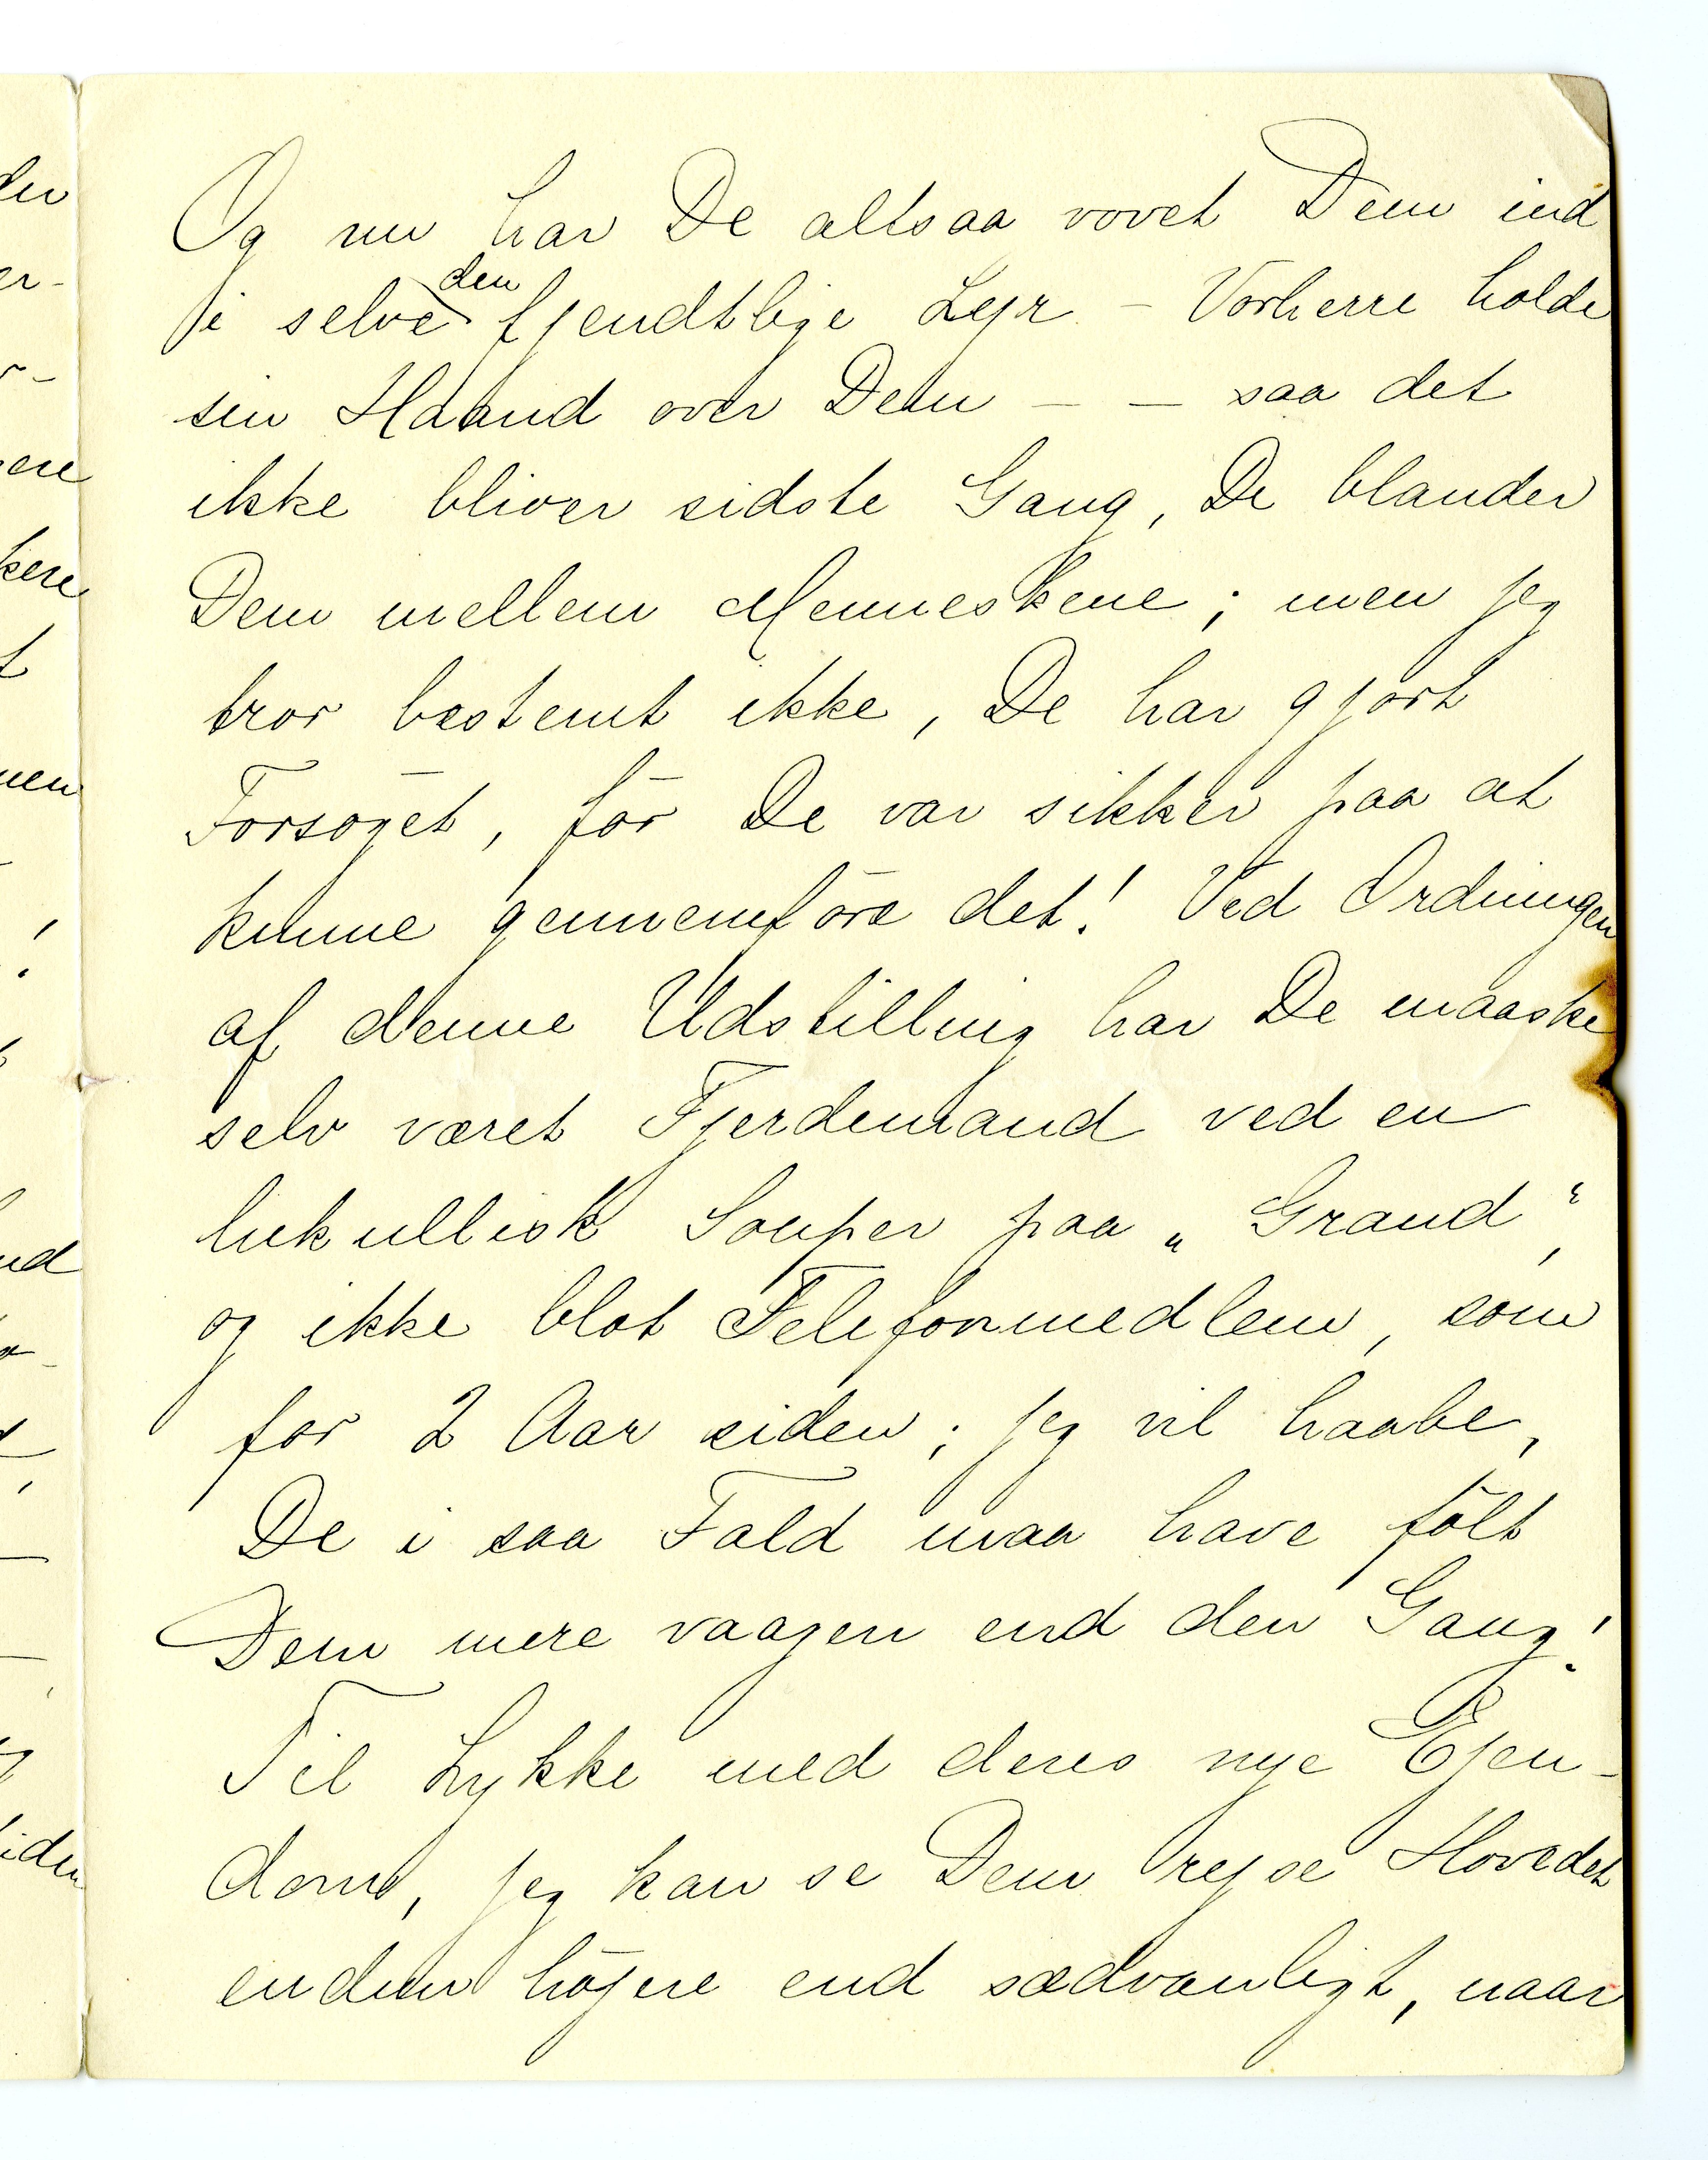 Og nu har De altsaa vovet Dem ind
i selve den fjendtlige Lejr. – Vorherre holde
sin Haand over Dem – – saa det
ikke bliver sidste Gang, De blander
Dem mellem Menneskene; men jeg
tror bestemt ikke, De har gjort
Forsøget, før De var sikker paa at
kunne gennemføre det! Ved Ordningen
af denne Udstilling har De maaske
selv været Fjerdemand ved en
lukullisk Souper paa „Grand“,
og ikke blot Telefonmedlem, som
for 2 Aar siden; jeg vil haabe,
De i saa Fald maa have følt
Dem mere vaagen end den Gang!
Til Lykke med deres nye Ejen-
dom, jeg kan se Dem rejse Hovedet
endnu højere end sædvanligt, naar